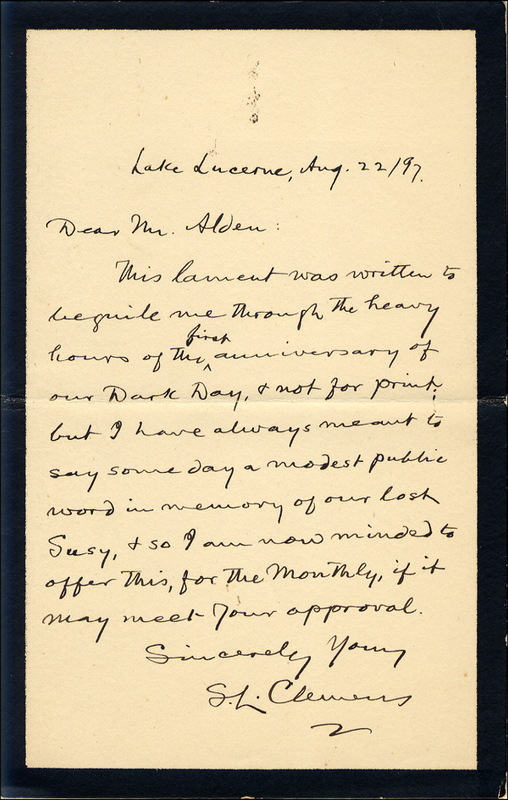 Lake Lucerne, Aug. 22/97.
Dear Mr. Alden:
This lament was written to
beguile me through the heavy
hours of the first anniversary of
our Dark Day, & not for print;
but I have always meant to
say some day a modest public
word in memory of our lost
Susy, & so I am now minded to
offer this, for the Monthly, if it
may meet your approval.
Sincerely Yours
S. L. Clemens